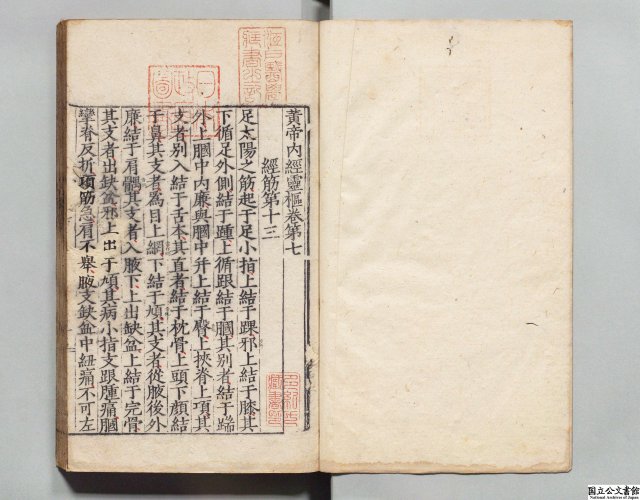 黃帝內經靈樞卷第七
經筋第十三
足太陽之筋起于足小指上結于踝邪上結于膝其
下循足外側結于踵上循跟結于膕其別者結于踹
外上膕中內廉與膕中并上結于臀上挾脊上項其
支者別入結于舌本其直者結于枕骨上頭下顏結
于鼻其支者為目上網下結于頄其支者從腋後外
廉結于肩髃其支者入腋下上出缺盆上結于完骨
其支者出缺盆邪上出于頄其病小指支跟腫痛膕
攣脊反折項筋急肩不舉腋支缺盆中紐痛不可左
国立公文書館
National Archives of Japan